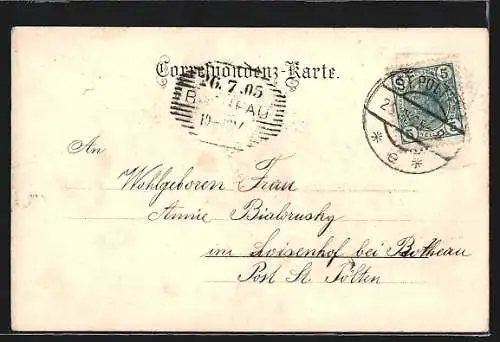 Correspondenz-Karte.
26.7.05
5
ST. POELTEN
* e *
An
Wohlgeboren Frau
Annie Bialorusky
im Loisenhof bei Botheau
Post St. Pölten